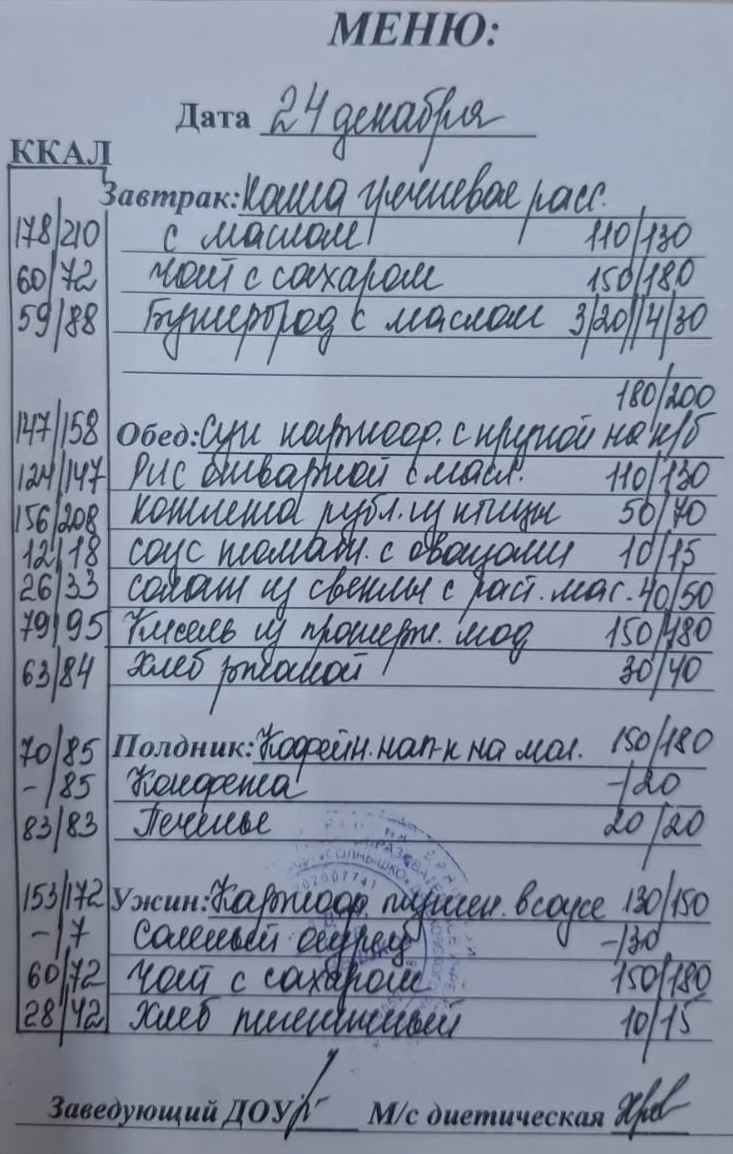 МЕНЮ:
Дата 24 декабря
ККАЛ
Завтрак: Каша гречневая расс.
178/210 с маслом 110/130
60/72 Чай с сахаром 150/180
59/88 Бутерброд с маслом 3/20//4/30
180/200
147/158 Обед: Суп картоф. с крупой на к/б
124/147 Рис отварной с масл. 110/130
156/208 котлета рубл. из птицы 50/70
12/18 соус томатн. с овощами 10/15
26/33 салат из свеклы с раст. мас. 40/50
79/95 Кисель из протертн. 150/180
63/84 Хлеб ржаной 30/40
70/85 Полдник: Кофейн. нап-к на мол. 150/180
-/85 Конфета -/20
83/83 Печенье 20/20
153/172 Ужин: Картоф. тушен. в соусе 130/150
-/7 Соленый огурец -/30
60/72 Чай с сахаром 150/180
28/42 Хлеб пшеничный 10/15
Заведующий ДОУ М/с диетическая